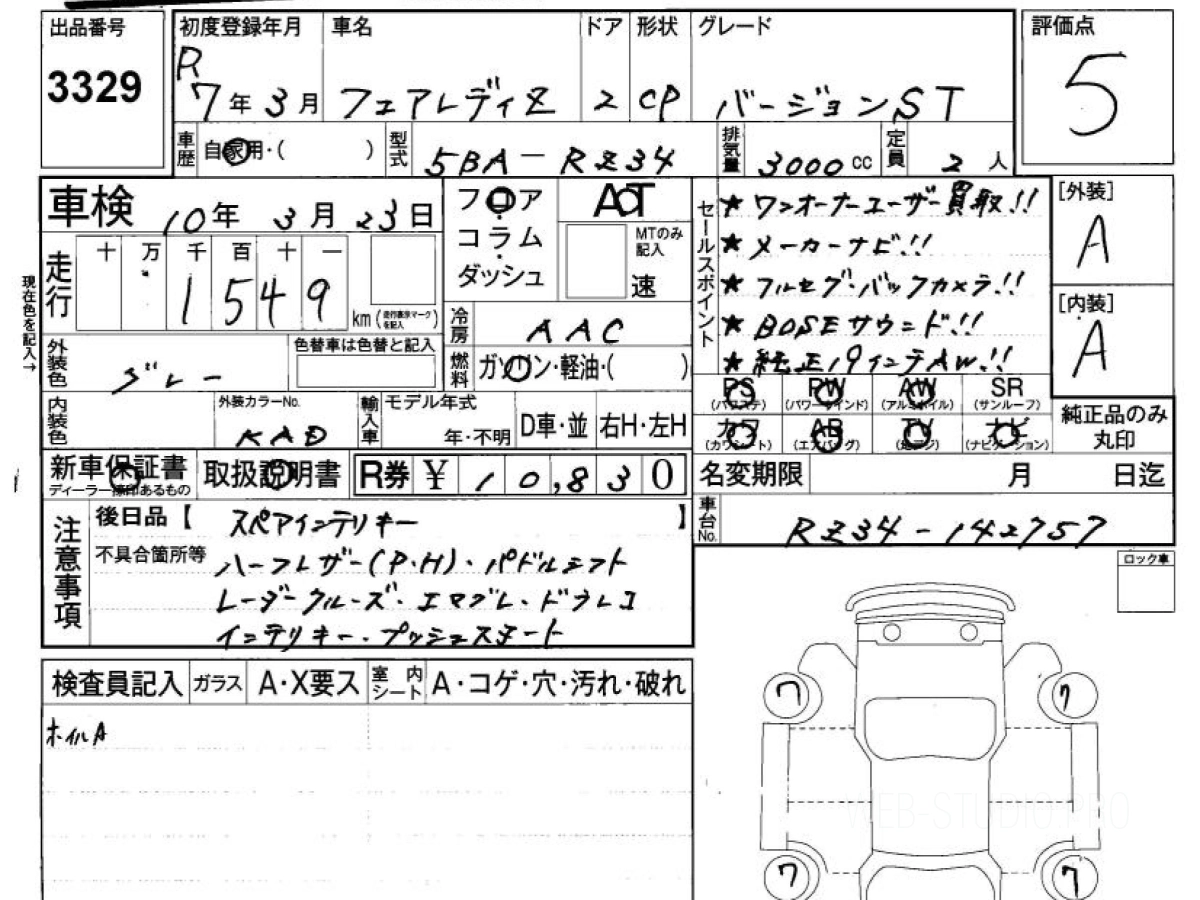 出品番号
3329
初度登録年月
R
7年 3月
車名
フェアレディZ
ドア
2
形状
CP
グレード
バージョンST
評価点
5
車歴
自家用・( )
型式
5BA-RZ34
排気量
3000 cc
定員
2 人
車検
10年 3月 23日
フロア
コラム
ダッシュ
AT
MTのみ記入
速
セールスポイント
★ ワンオーナーユーザー買取!!
★ メーカーナビ!!
★ フルセグ・バックカメラ!!
★ BOSEサウンド!!
★ 純正19インチAW!!
[外装]
A
[内装]
A
現在色を記入→
走行
十 万 千 百 十 一
1549
km(走行表示マークを記入)
冷房
AAC
燃料
ガソリン・軽油・( )
外装色
グレー
色替車は色替と記入
内装色
外装カラーNo.
KAD
輸入車
モデル年式
年・不明
D車・並
右H・左H
PS
(パワステ)
PW
(パワーウインド)
AW
(アルミホイル)
SR
(サンルーフ)
カワ
(カワシート)
AB
(エアバッグ)
TV
(地デジ)
ナビ
(ナビゲーション)
純正品のみ
丸印
新車保証書
ディーラー捺印あるもの
取扱説明書
R券 ¥ 10,830
名変期限
月 日迄
車台No.
RZ34-142757
注意事項
後日品【 スペアインテリキー 】
不具合箇所等
ハーフレザー(P・H)・パドルシフト
レーダークルーズ・エマブレ・ドラレコ
インテリキー・プッシュスタート
ロック車
検査員記入
ガラス
A・X要ス
室内シート
A・コゲ・穴・汚れ・破れ
ホイルA
7
7
7
7
WEB-STUDIO.PRO